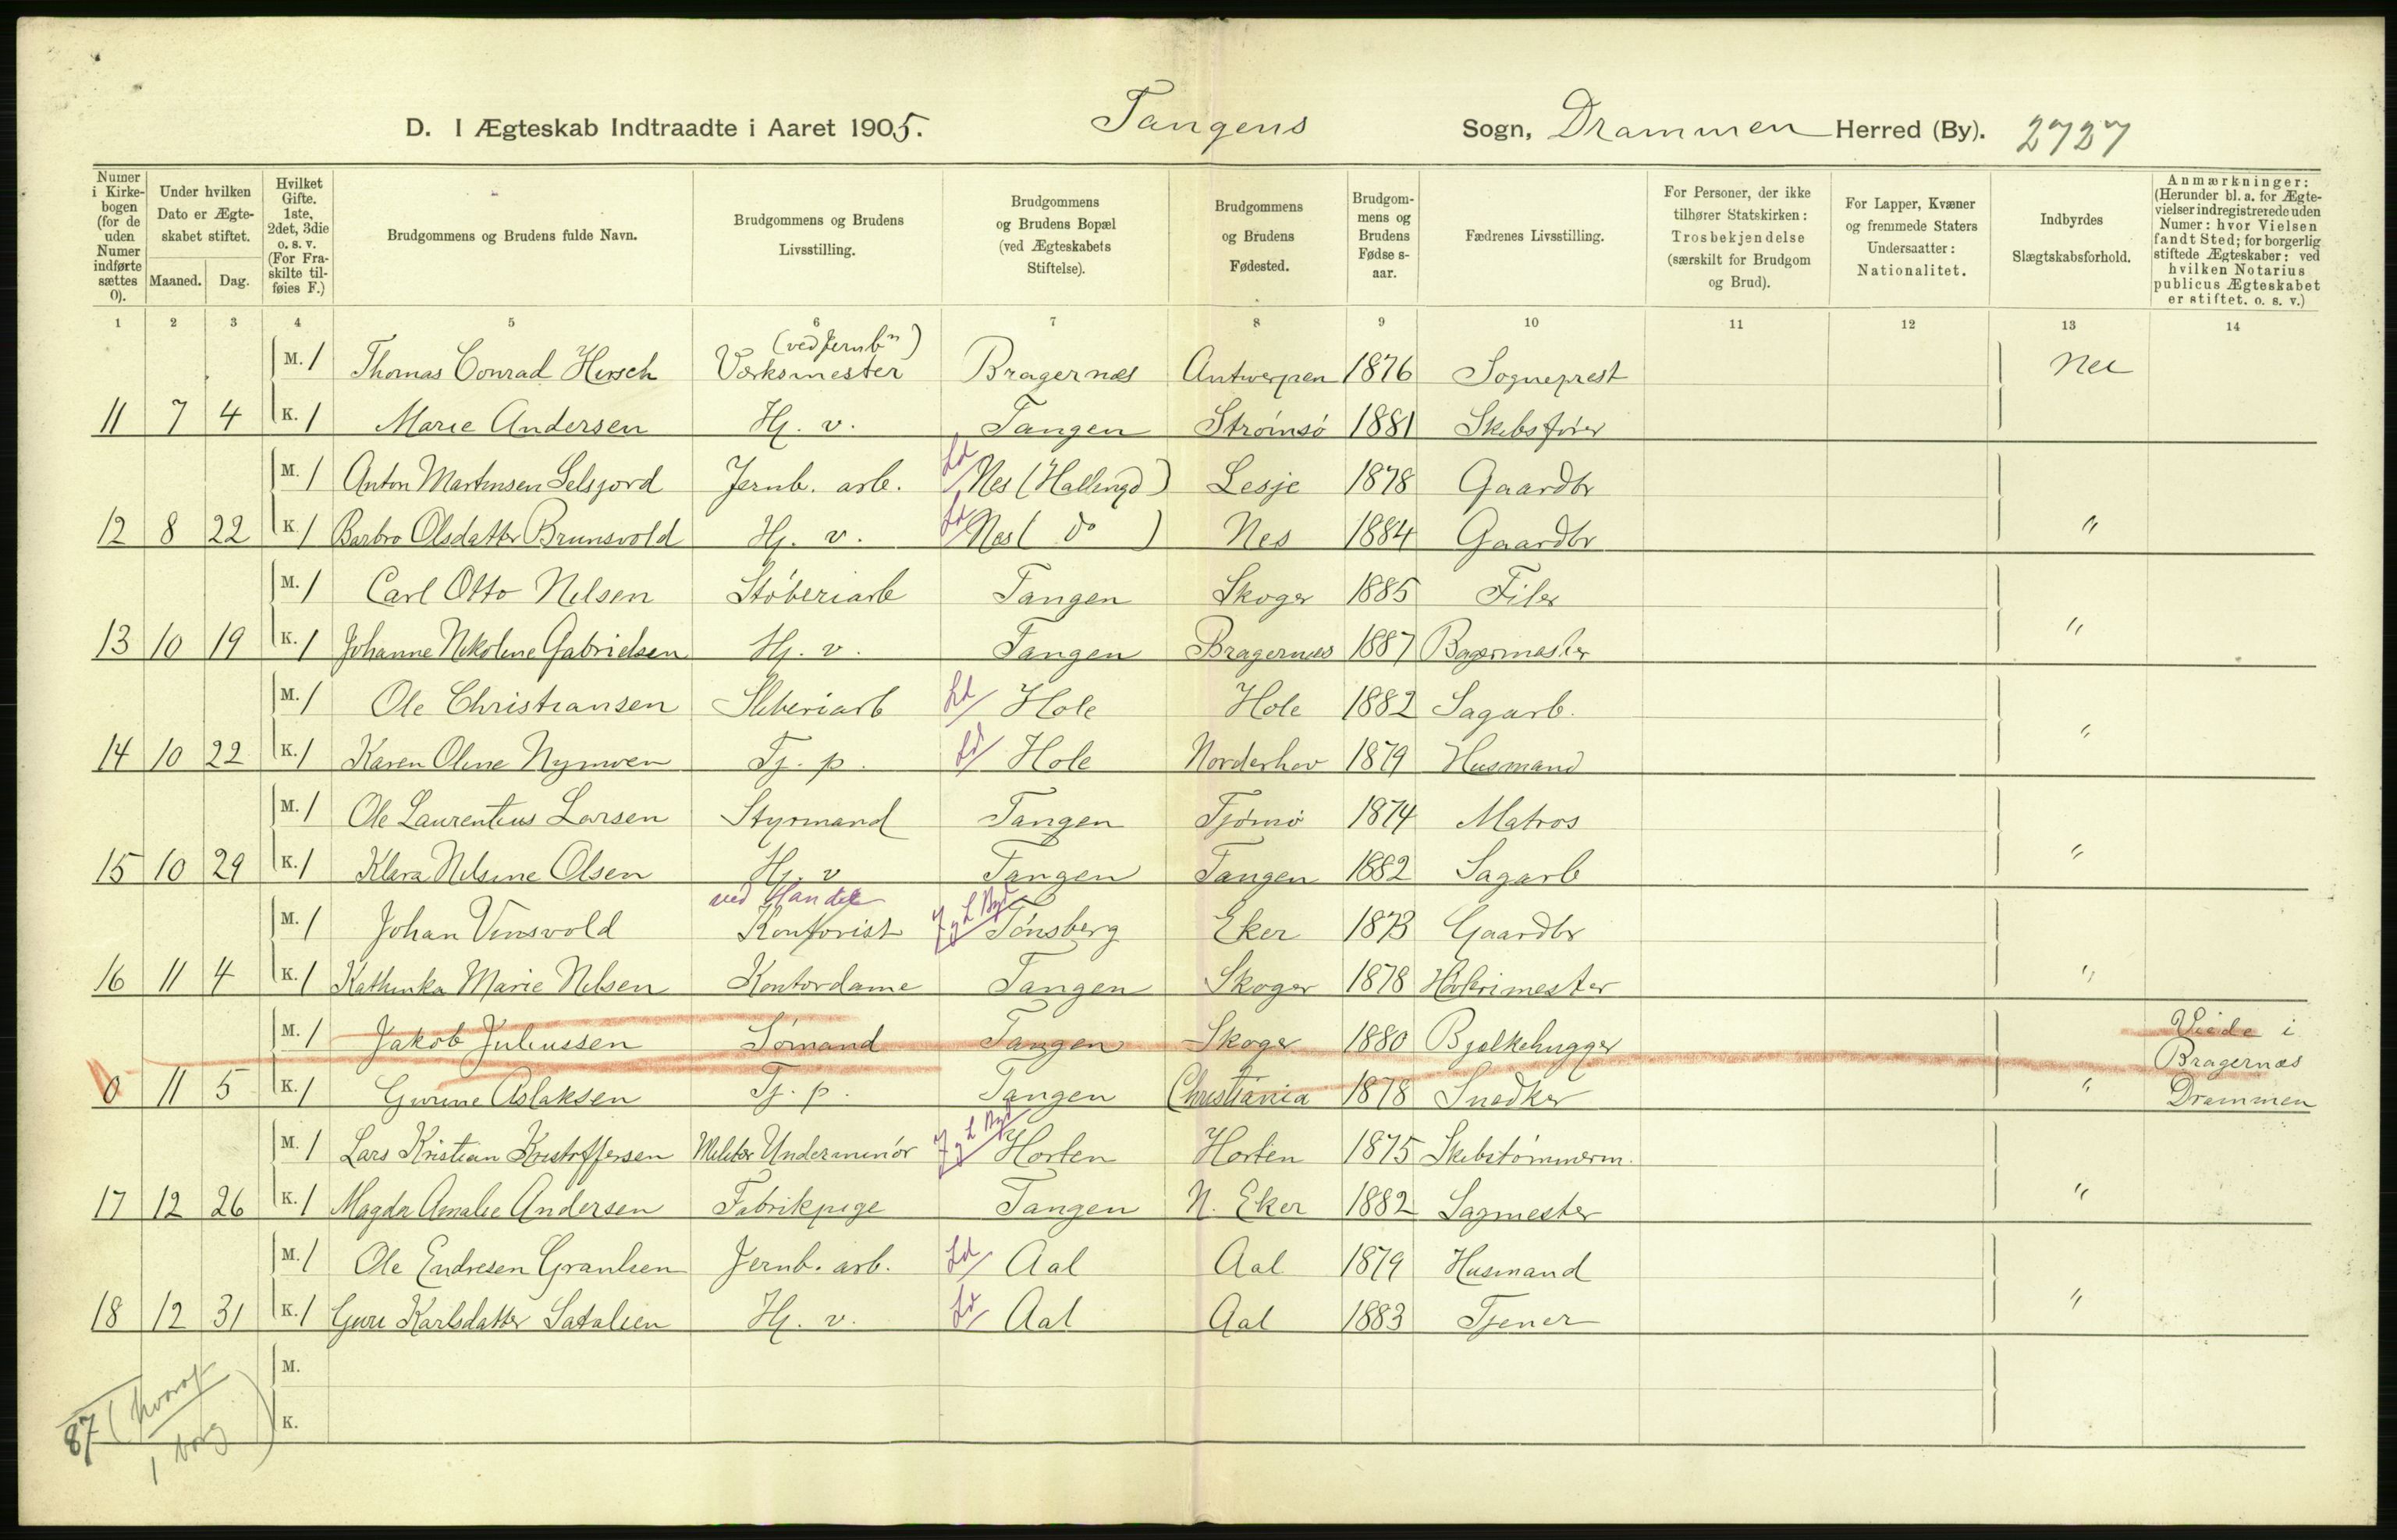 D. I Ægteskab Indtraadte i Aaret 1905. Tangens Sogn, Drammen Herred (By). 2727
Numer i Kirkebogen (for de uden Numer indførte sættes 0).
Under hvilken Dato er Ægteskabet stiftet.
Maaned. Dag.
Hvilket Gifte. 1ste, 2det, 3die o. s. v. (For Fraskilte tilføies F.)
Brudgommens og Brudens fulde Navn.
Brudgommens og Brudens Livsstilling.
Brudgommens og Brudens Bopæl (ved Ægteskabets Stiftelse).
Brudgommens og Brudens Fødested.
Brudgommens og Brudens Fødselsaar.
Fædrenes Livsstilling.
For Personer, der ikke tilhører Statskirken: Trosbekjendelse (særskilt for Brudgom og Brud).
For Lapper, Kvæner og fremmede Staters Undersaatter: Nationalitet.
Indbyrdes Slægtskabsforhold.
Anmærkninger: (Herunder bl. a. for Ægtevielser indregistrerede uden Numer: hvor Vielsen fandt Sted; for borgerlig stiftede Ægteskaber: ved hvilken Notarius publicus Ægteskabet er stiftet. o. s. v.)
1 2 3 4 5 6 7 8 9 10 11 12 13 14
(ved Jernbn)
M. 1 Thomas Conrad Hirsch Værksmester Bragernæs Antwerpen 1876 Sogneprest Nei
11 7 4 K. 1 Marie Andersen Hj. v. Tangen Strømsø 1881 Skibsfører
M. 1 Anton Martinsen Selsjord Jernb. arb. Ld Nes (Hallingd) Lesje 1878 Gaardbr
12 8 22 K. 1 Barbro Olsdatter Brunsvold Hj. v. Ld Nes ( do ) Nes 1884 Gaardbr "
M. 1 Carl Otto Nilsen Støberiarb Tangen Skoger 1885 Filer
13 10 19 K. 1 Johanne Nikoline Gabrielsen Hj. v. Tangen Bragernes 1887 Bagermester "
M. 1 Ole Christiansen Sliberiarb Ld Hole Hole 1882 Sagarb.
14 10 22 K. 1 Karen Oline Nymoen Tj. p. Ld Hole Norderhov 1879 Husmand "
M. 1 Ole Laurentius Larsen Styrmand Tangen Tjømø 1874 Matros
15 10 29 K. 1 Klara Nilsine Olsen Hj. v Tangen Tangen 1882 Sagarb "
ved Handel
M. 1 Johan Vinsvold Kontorist Tønsberg Eker 1873 Gaardbr
16 11 4 K. 1 Kathinka Marie Nilsen Kontordame Tangen Skoger 1878 Høvlerimester "
M. 1 Jakob Juliussen Sømand Tangen Skoger 1880 Bjelkehugger Viede i
Bragernæs
0 11 5 K. 1 Gurine Aslaksen Tj. p. Tangen Christiania 1878 Snedker " Drammen
M. 1 Lars Kristian Kristoffersen Militær Underminør Horten Horten 1875 Skibstømmerm.
17 12 26 K. 1 Magda Amalie Andersen Fabrikpige Tangen N. Eker 1882 Sagmester "
M. 1 Ole Endresen Granlien Jernb. arb. Ld Aal Aal 1879 Husmand
18 12 31 K. 1 Guri Karlsdatter Satalien Hj. v. Ld Aal Aal 1883 Tjener "
M.
K.
87 (hvoraf
1 borg)